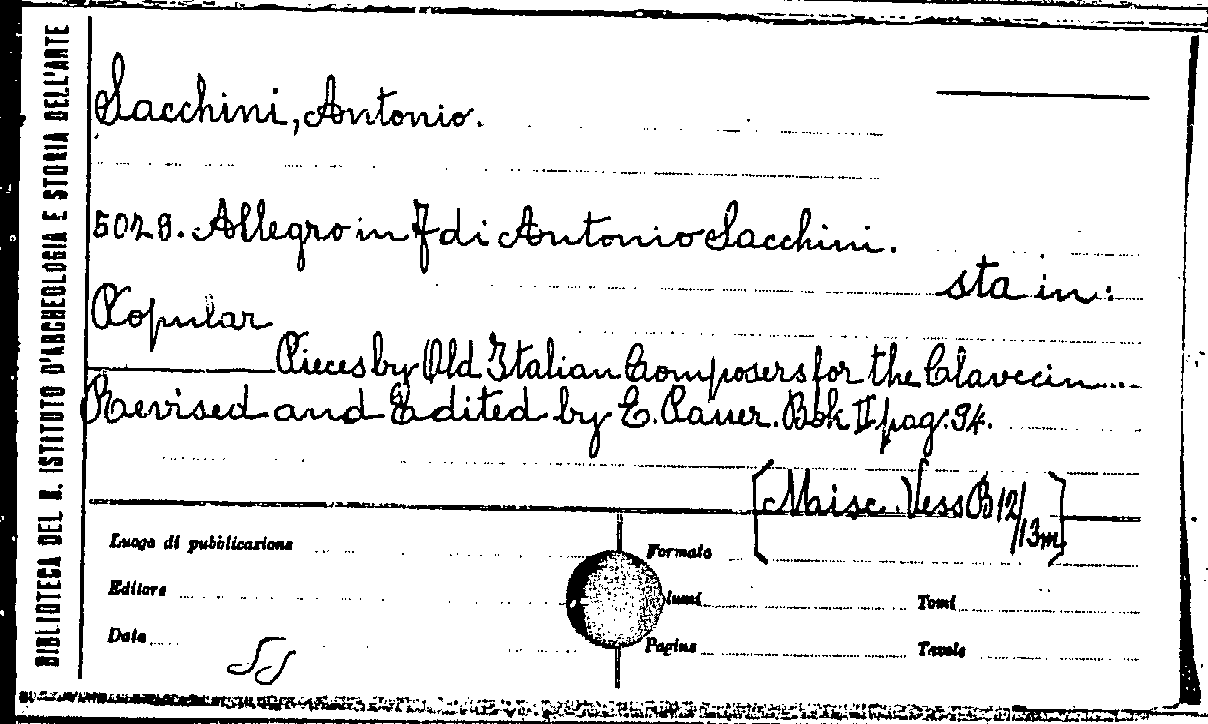 BIBLIOTECA DEL R. ISTITUTO D'ARCHEOLOGIA E STORIA DELL'ARTE
Sacchini, Antonio.
5028. Allegro in F di Antonio Sacchini.
sta in:
Popular
Pieces by Old Italian Composers for the Clavecin....
Revised and Edited by E. Pauer. Bok II pag. 94.
[Misc. Vess B 12/13m]
Luogo di pubblicazione
Formato
Editore
lumi
Tomi
Data
Pagine
Tavole